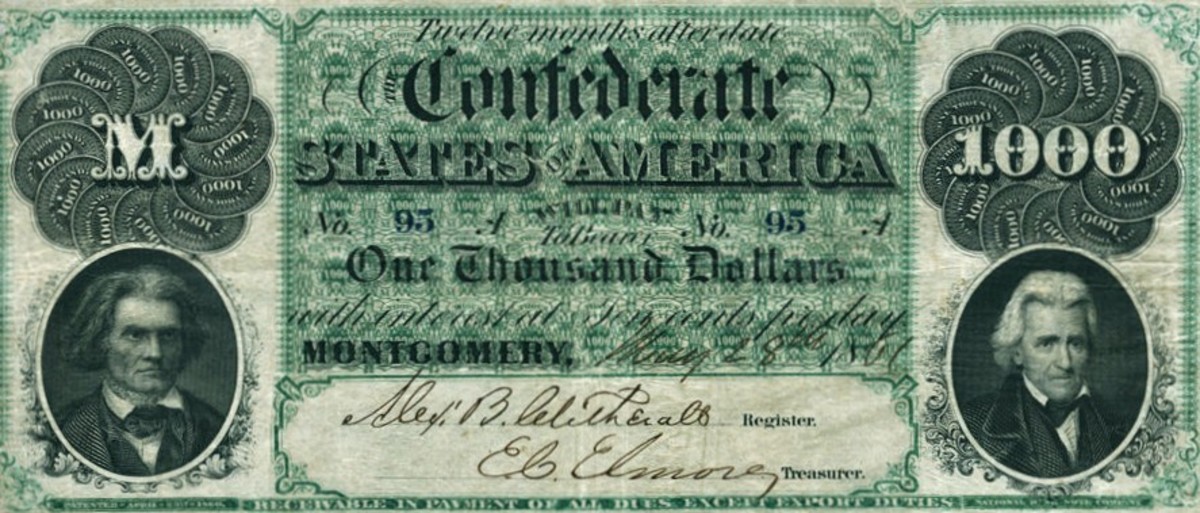 Twelve months after date
THE Confederate
STATES OF AMERICA
M
1000
No. 95 A WILL PAY No. 95 A
To Bearer
One Thousand Dollars
with interest at Ten cents per day
MONTGOMERY, May 28th 1861
Alex. B. Clitherall Register.
E.C. Elmore, Treasurer.
RECEIVABLE IN PAYMENT OF ALL DUES EXCEPT EXPORT DUTIES
NATIONAL BANK NOTE COMPANY